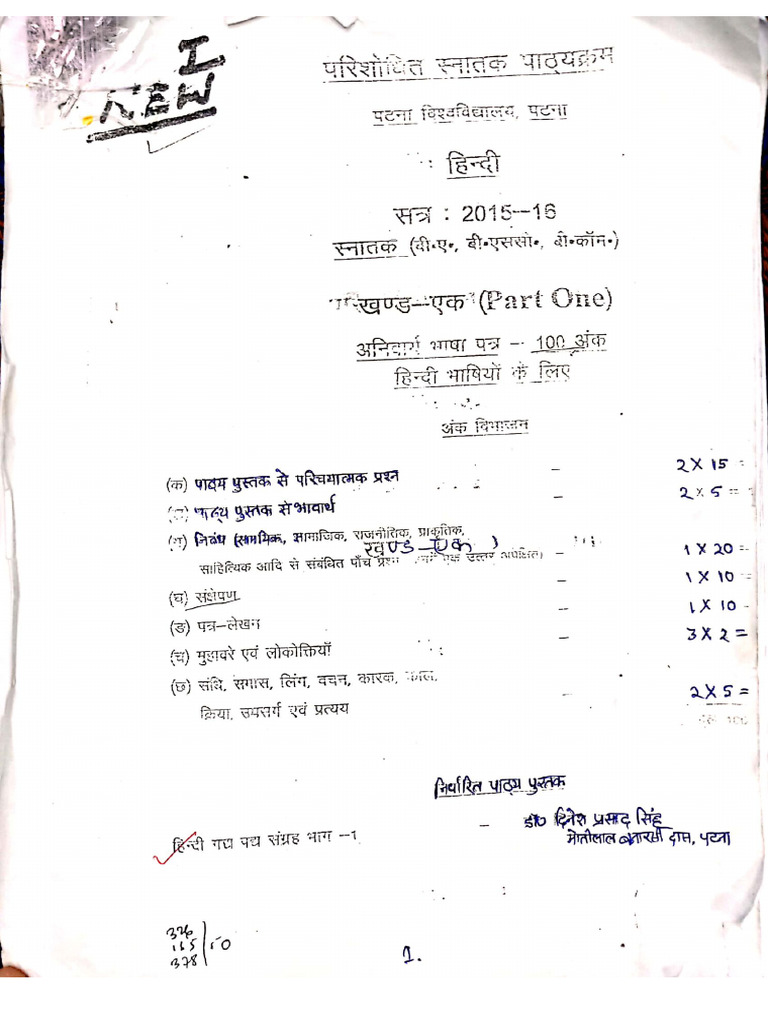 I
NEW
परिशोधित स्नातक पाठ्यक्रम
पटना विश्वविद्यालय, पटना
हिन्दी
सत्र : 2015--16
स्नातक (बी॰ए॰, बी॰एससी॰, बी॰कॉन॰)
खण्ड--एक (Part One)
अनिवार्य भाषा पत्र -- 100 अंक
हिन्दी भाषियों के लिए
अंक विभाजन
(क) पाठ्य पुस्तक से परिचयात्मक प्रश्न – 2 X 15 =
पाठ्य पुस्तक से भावार्थ – 2 X 5 =
(ग) निबंध (सामयिक, सामाजिक, राजनीतिक, प्राकृतिक,
खण्ड-एक
साहित्यिक आदि से संबंधित पाँच प्रश्न एक उत्तर अपेक्षित) – 1 X 20 =
(घ) संक्षेपण – 1 X 10 -
(ङ) पत्र–लेखन – 1 X 10 -
(च) मुहावरे एवं लोकोक्तियाँ – 3 X 2 =
(छ) संधि, समास, लिंग, वचन, कारक, काल,
क्रिया, उपसर्ग एवं प्रत्यय – 2 X 5 =
100
निर्धारित पाठ्य पुस्तक
हिन्दी गद्य पद्य संग्रह भाग -1 – डा० दिनेश प्रसाद सिंह
मोतीलाल बनारसी दास, पटना
326
115
378
1.